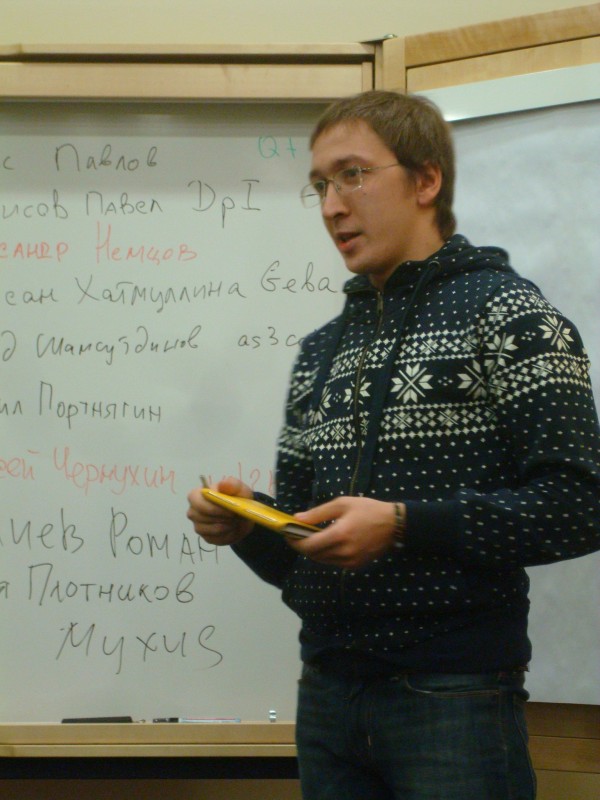 с Павлов Qt
исов Павел DpI
сандр Немцов
сан Хатмуллина Gева
д Шамсутдинов as3c
ил Портнягин
ей Чернухин
лиев Роман
я Плотников
Мухиз